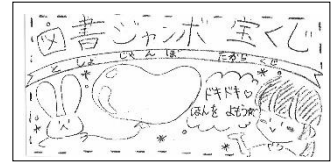 図書ジャンボ宝くじ
としょ じゃんぼ たからくじ
ドキドキ♡
ほんを よもう☆